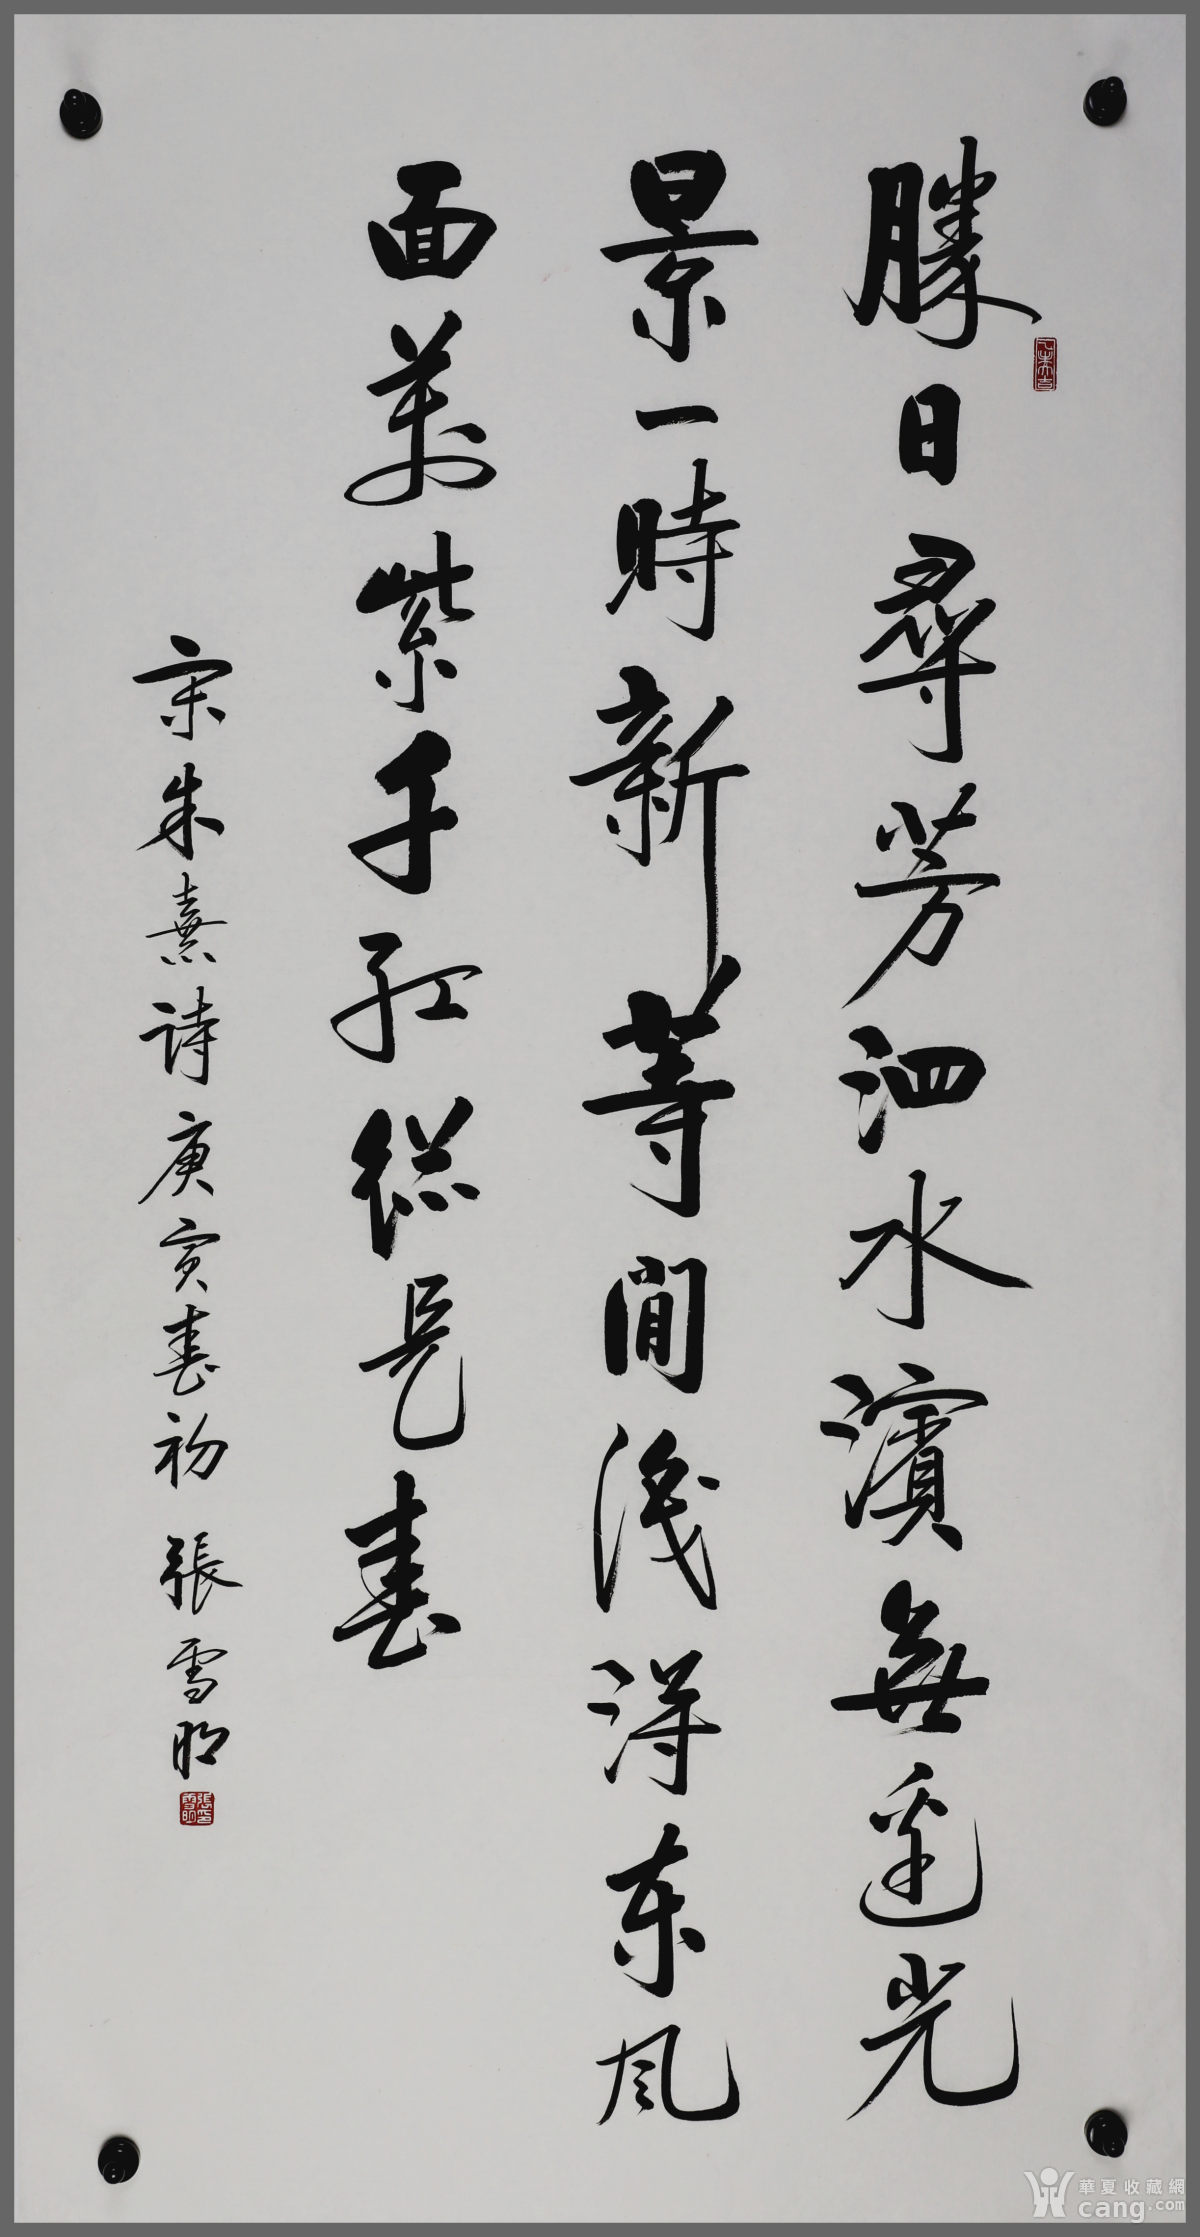 勝日尋芳泗水濱無邊光
景一時新等閒識得東風
面萬紫千紅總是春
宋朱熹詩庚寅春初 張雪明
華夏收藏網
cang.com